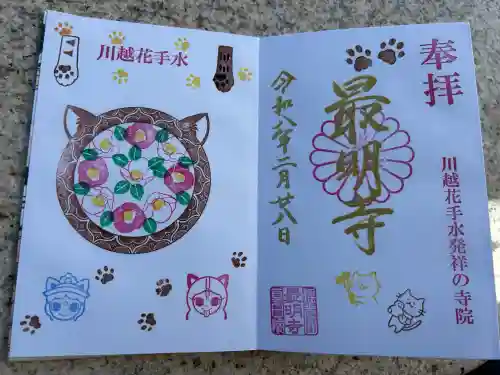 奉拝
川越花手水発祥の寺院
最明寺
令和八年二月廿八日
最明寺
川越花手水